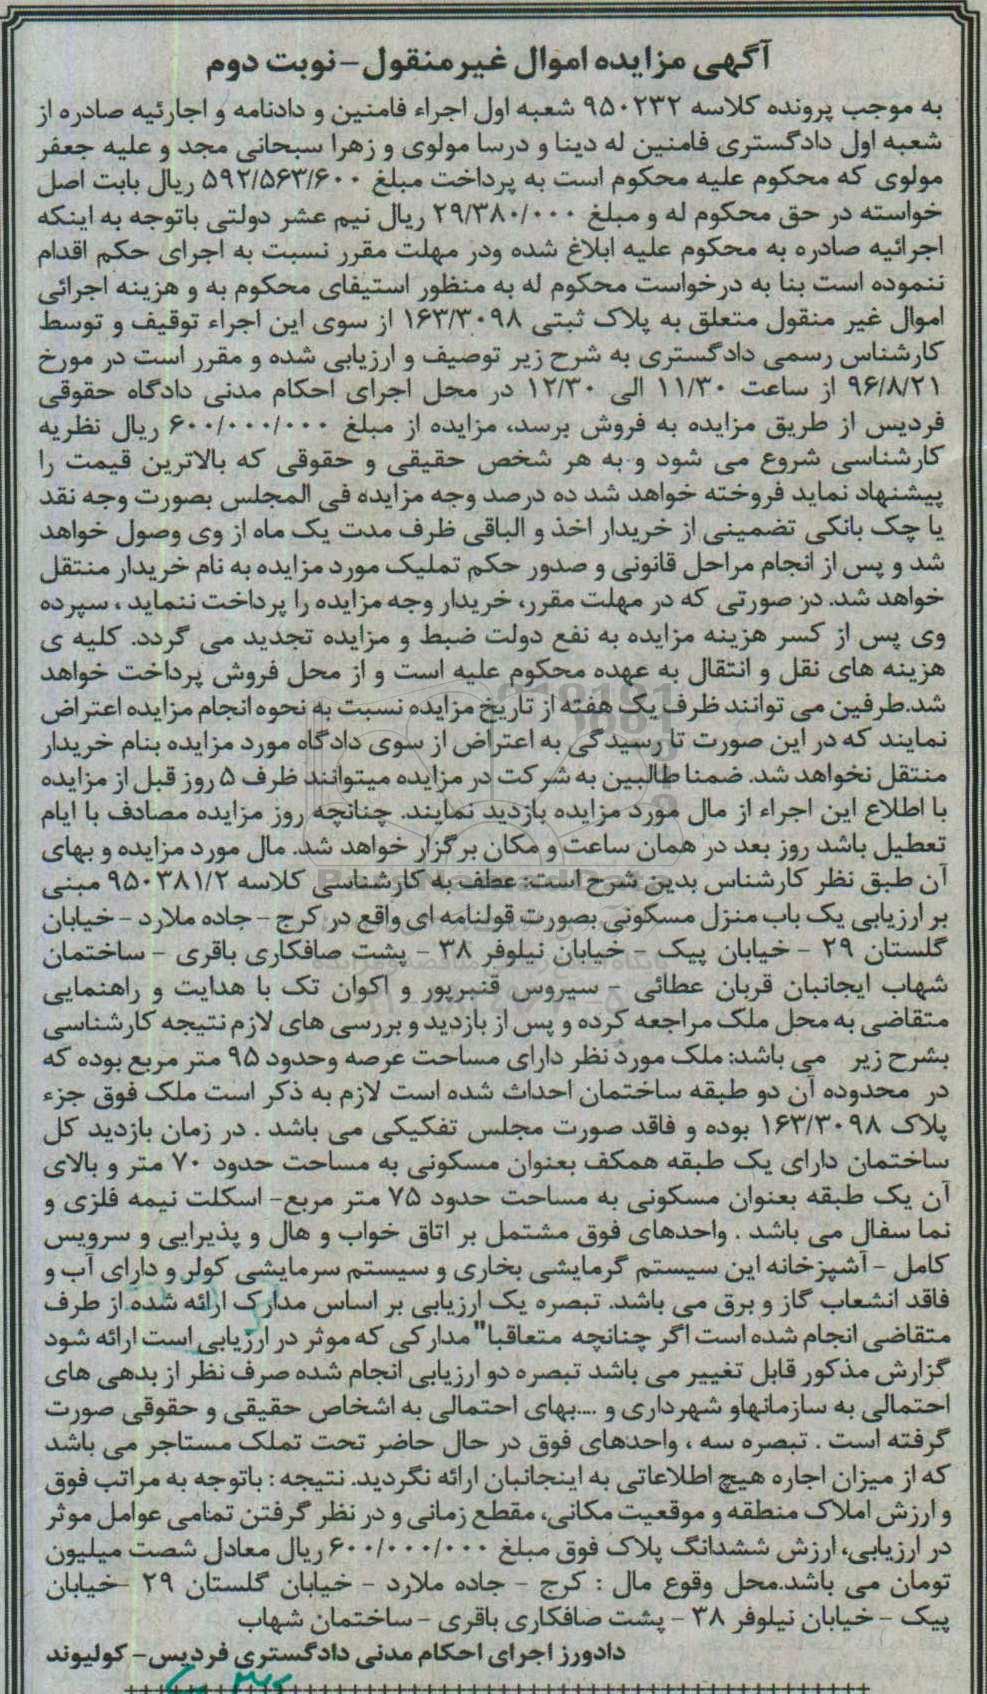 آگهی مزایده اموال غیرمنقول-نوبت دوم
به موجب پرونده کلاسه ۹۵۰۲۳۲ شعبه اول اجراء فامنین و دادنامه و اجارئیه صادره از
شعبه اول دادگستری فامنین له دینا و درسا مولوی و زهرا سبحانی مجد و علیه جعفر
مولوی که محکوم علیه محکوم است به پرداخت مبلغ ۵۹۲/۵۶۳/۶۰۰ ریال بابت اصل
خواسته در حق محکوم له و مبلغ ۲۹/۳۸۰/۰۰۰ ریال نیم عشر دولتی باتوجه به اینکه
اجرائیه صادره به محکوم علیه ابلاغ شده ودر مهلت مقرر نسبت به اجرای حکم اقدام
ننموده است بنا به درخواست محکوم له به منظور استیفای محکوم به و هزینه اجرائی
اموال غیر منقول متعلق به پلاک ثبتی ۱۶۳/۳۰۹۸ از سوی این اجراء توقیف و توسط
کارشناس رسمی دادگستری به شرح زیر توصیف و ارزیابی شده و مقرر است در مورخ
۹۶/۸/۲۱ از ساعت ۱۱/۳۰ الی ۱۲/۳۰ در محل اجرای احکام مدنی دادگاه حقوقی
فردیس از طریق مزایده به فروش برسد، مزایده از مبلغ ۶۰۰/۰۰۰/۰۰۰ ریال نظریه
کارشناسی شروع می شود و به هر شخص حقیقی و حقوقی که بالاترین قیمت را
پیشنهاد نماید فروخته خواهد شد ده درصد وجه مزایده فی المجلس بصورت وجه نقد
یا چک بانکی تضمینی از خریدار اخذ و الباقی ظرف مدت یک ماه از وی وصول خواهد
شد و پس از انجام مراحل قانونی و صدور حکم تملیک مورد مزایده به نام خریدار منتقل
خواهد شد. در صورتی که در مهلت مقرر، خریدار وجه مزایده را پرداخت ننماید ، سپرده
وی پس از کسر هزینه مزایده به نفع دولت ضبط و مزایده تجدید می گردد. کلیه ی
هزینه های نقل و انتقال به عهده محکوم علیه است و از محل فروش پرداخت خواهد
شد.طرفین می توانند ظرف یک هفته از تاریخ مزایده نسبت به نحوه انجام مزایده اعتراض
نمایند که در این صورت تا رسیدگی به اعتراض از سوی دادگاه مورد مزایده بنام خریدار
منتقل نخواهد شد. ضمنا طالبین به شرکت در مزایده میتوانند ظرف ۵ روز قبل از مزایده
با اطلاع این اجراء از مال مورد مزایده بازدید نمایند. چنانچه روز مزایده مصادف با ایام
تعطیل باشد روز بعد در همان ساعت و مکان برگزار خواهد شد. مال مورد مزایده و بهای
آن طبق نظر کارشناس بدین شرح است: عطف به کارشناسی کلاسه ۹۵۰۳۸۱/۲ مبنی
بر ارزیابی یک باب منزل مسکونی بصورت قولنامه ای واقع در کرج - جاده ملارد - خیابان
گلستان ۲۹ - خیابان پیک - خیابان نیلوفر ۳۸ - پشت صافکاری باقری - ساختمان
شهاب ایجانبان قربان عطائی - سیروس قنبرپور و اکوان تک با هدایت و راهنمایی
متقاضی به محل ملک مراجعه کرده و پس از بازدید و بررسی های لازم نتیجه کارشناسی
بشرح زیر می باشد: ملک مورد نظر دارای مساحت عرصه وحدود ۹۵ متر مربع بوده که
در محدوده آن دو طبقه ساختمان احداث شده است لازم به ذکر است ملک فوق جزء
پلاک ۱۶۳/۳۰۹۸ بوده و فاقد صورت مجلس تفکیکی می باشد . در زمان بازدید کل
ساختمان دارای یک طبقه همکف بعنوان مسکونی به مساحت حدود ۷۰ متر و بالای
آن یک طبقه بعنوان مسکونی به مساحت حدود ۷۵ متر مربع- اسکلت نیمه فلزی و
نما سفال می باشد . واحدهای فوق مشتمل بر اتاق خواب و هال و پذیرایی و سرویس
کامل - آشپزخانه این سیستم گرمایشی بخاری و سیستم سرمایشی کولر و دارای آب و
فاقد انشعاب گاز و برق می باشد. تبصره یک ارزیابی بر اساس مدارک ارائه شده از طرف
متقاضی انجام شده است اگر چنانچه متعاقبا" مدارکی که موثر در ارزیابی است ارائه شود
گزارش مذکور قابل تغییر می باشد تبصره دو ارزیابی انجام شده صرف نظر از بدهی های
احتمالی به سازمانهاو شهرداری و ....بهای احتمالی به اشخاص حقیقی و حقوقی صورت
گرفته است . تبصره سه ، واحدهای فوق در حال حاضر تحت تملک مستاجر می باشد
که از میزان اجاره هیچ اطلاعاتی به اینجانبان ارائه نگردید. نتیجه : باتوجه به مراتب فوق
و ارزش املاک منطقه و موقعیت مکانی، مقطع زمانی و در نظر گرفتن تمامی عوامل موثر
در ارزیابی، ارزش ششدانگ پلاک فوق مبلغ ۶۰۰/۰۰۰/۰۰۰ ریال معادل شصت میلیون
تومان می باشد.محل وقوع مال : کرج - جاده ملارد - خیابان گلستان ۲۹ -خیابان
پیک - خیابان نیلوفر ۳۸ - پشت صافکاری باقری - ساختمان شهاب
دادورز اجرای احکام مدنی دادگستری فردیس- کولیوند